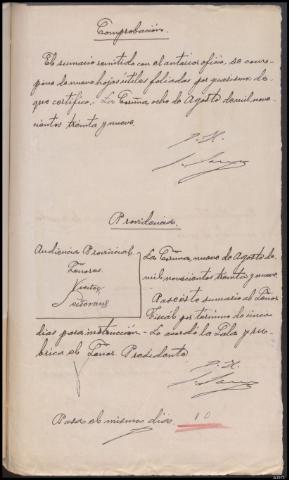 Comprobación.
El sumario remitido con el anterior oficio, se com-
pone de nueve hojas útiles foliadas por guarismo de
que certifico. La Coruña, ocho de Agosto de mil nove-
cientos treinta y nueve.
Providencia.
Audiencia Provincial
Señores
La Coruña, nueve de Agosto de
mil novecientos treinta y nueve.
Pase este sumario al Señor
Fiscal por termino de cinco
dias para instrucción.- Lo acordó la Sala y ru-
brica el Señor Presidente
Pasa el mismo dia.
10